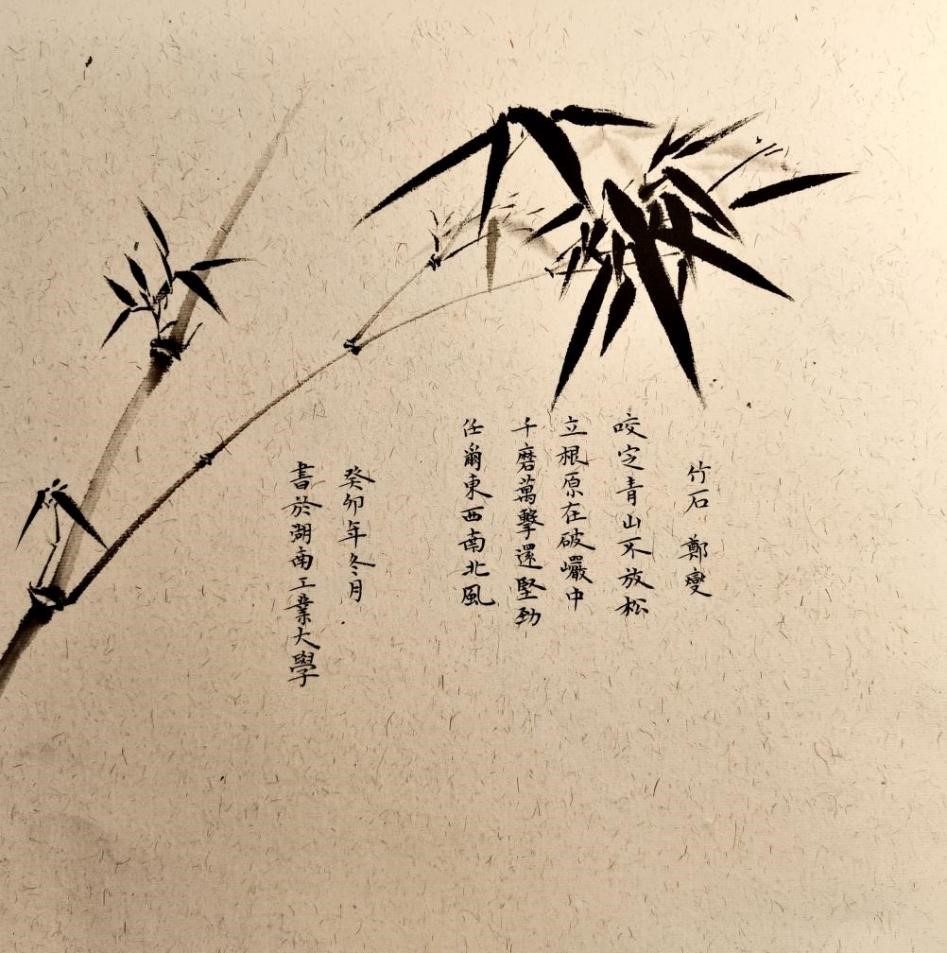 竹石 鄭燮
咬定青山不放松
立根原在破巖中
千磨萬擊還堅勁
任爾東西南北風
癸卯年冬月
書於湖南工業大學